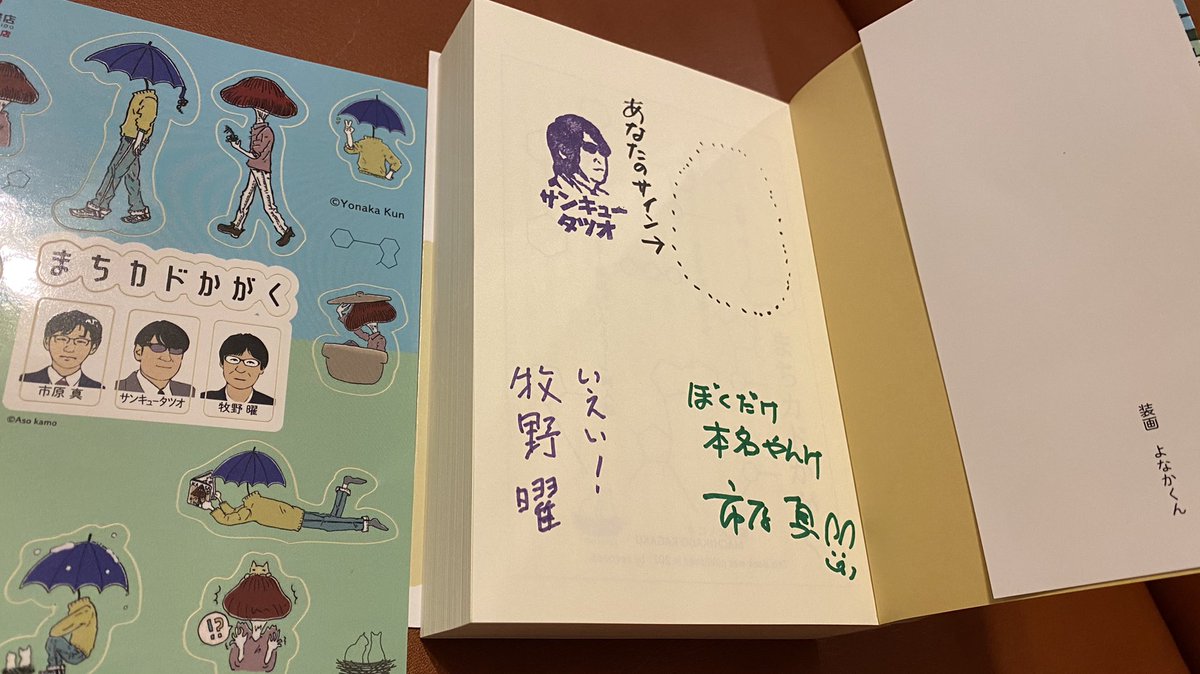 店
店
©Yonaka Kun
まちカドかがく
市原 真
サンキュータツオ
牧野 曜
©Aso kamo
!?
あなたのサイン→
サンキュー
タツオ
いえい!
牧野 曜
ぼくだけ
本名やんけ
市原 真
装画 よなかくん